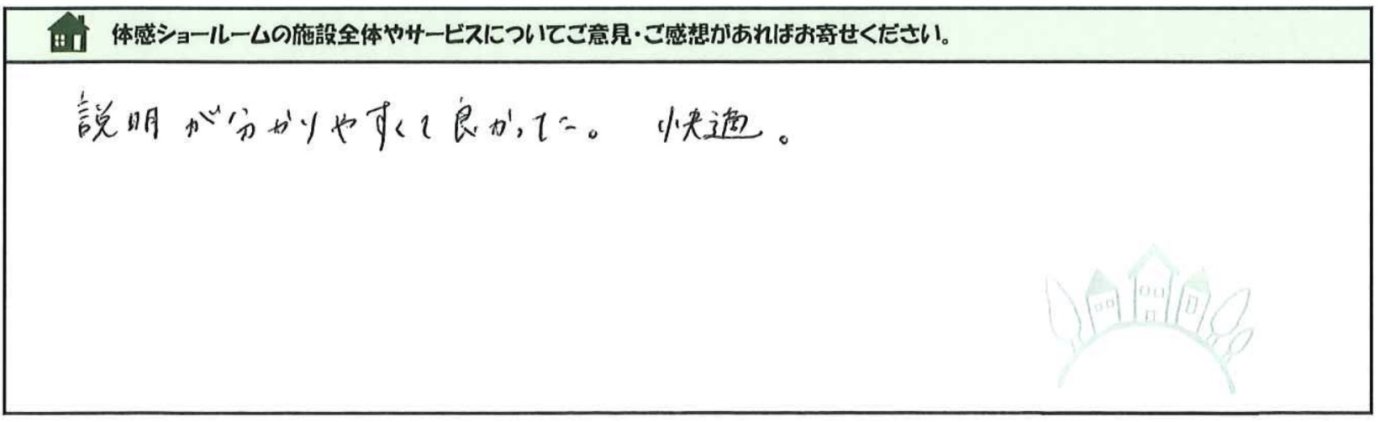 体感ショールームの施設全体やサービスについてご意見・ご感想があればお寄せください。
説明が分かりやすくて良かった。 快適。